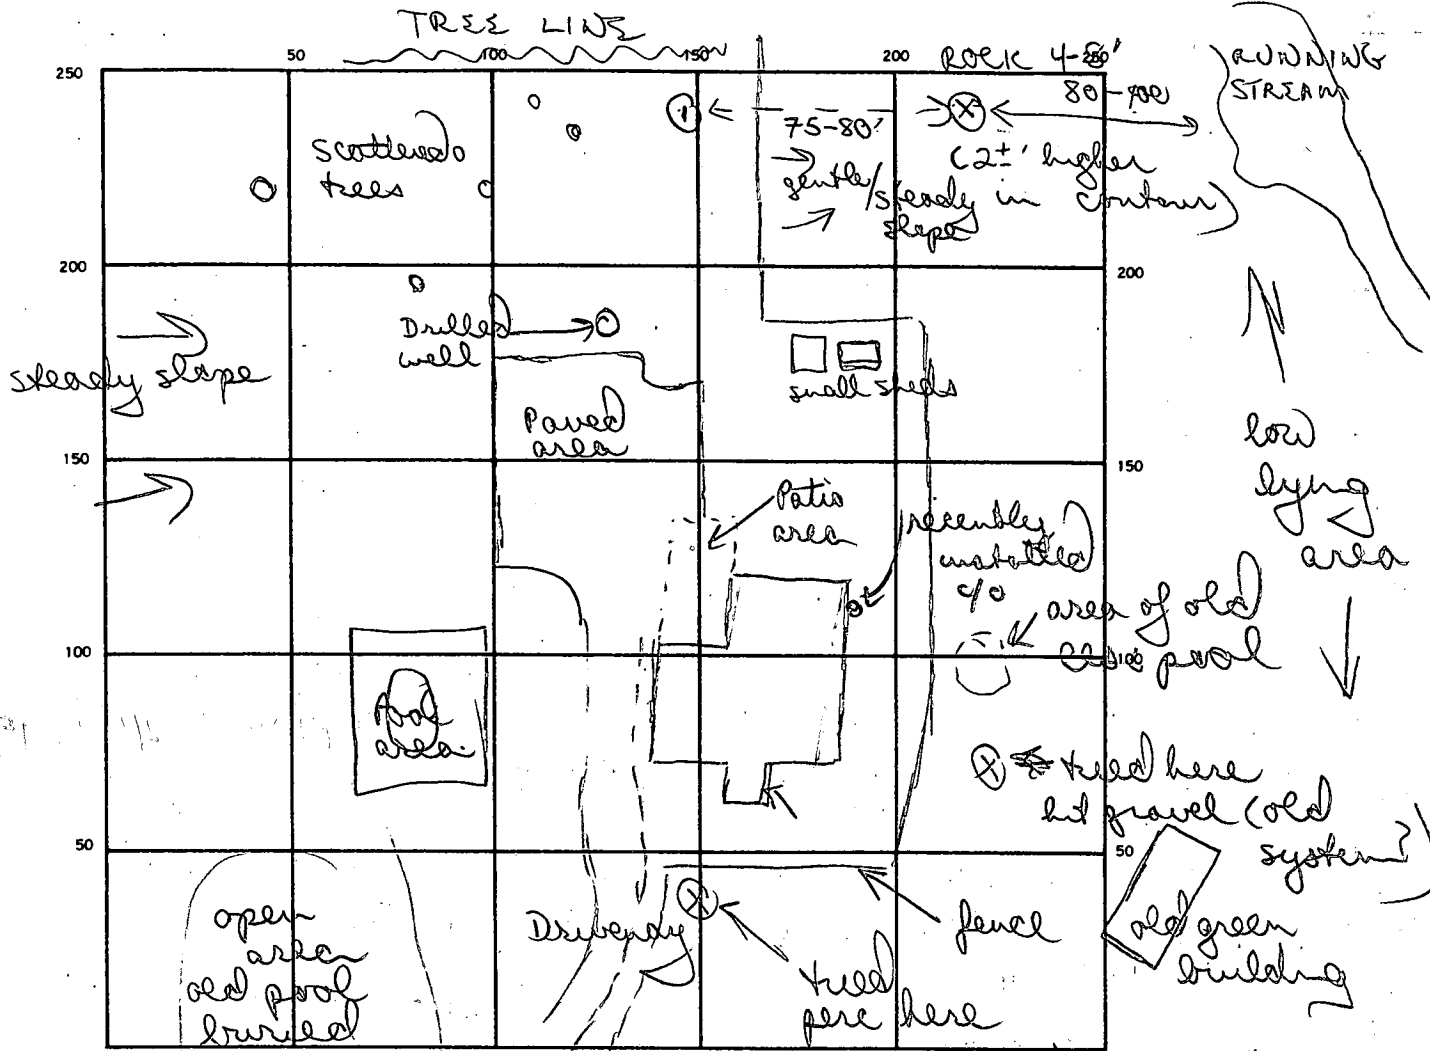 TREE LINE
50 100 150 200 250
ROCK 4-5'
RUNNING
STREAM
250
80-100
75-80'
(2±' higher
in contour)
gentle/steady
slope
scattered
trees
200
200
Drilled
well
steady slope
small sheds
Paved
area
low
lying
area
150
150
Patio
area
recently
installed
c/o
area of old
cess pool
100
100
Pool
area
tried here
hit gravel (old
system?)
50
50
open
area
old pool
buried
Driveway
tried
perc here
fence
old green
building